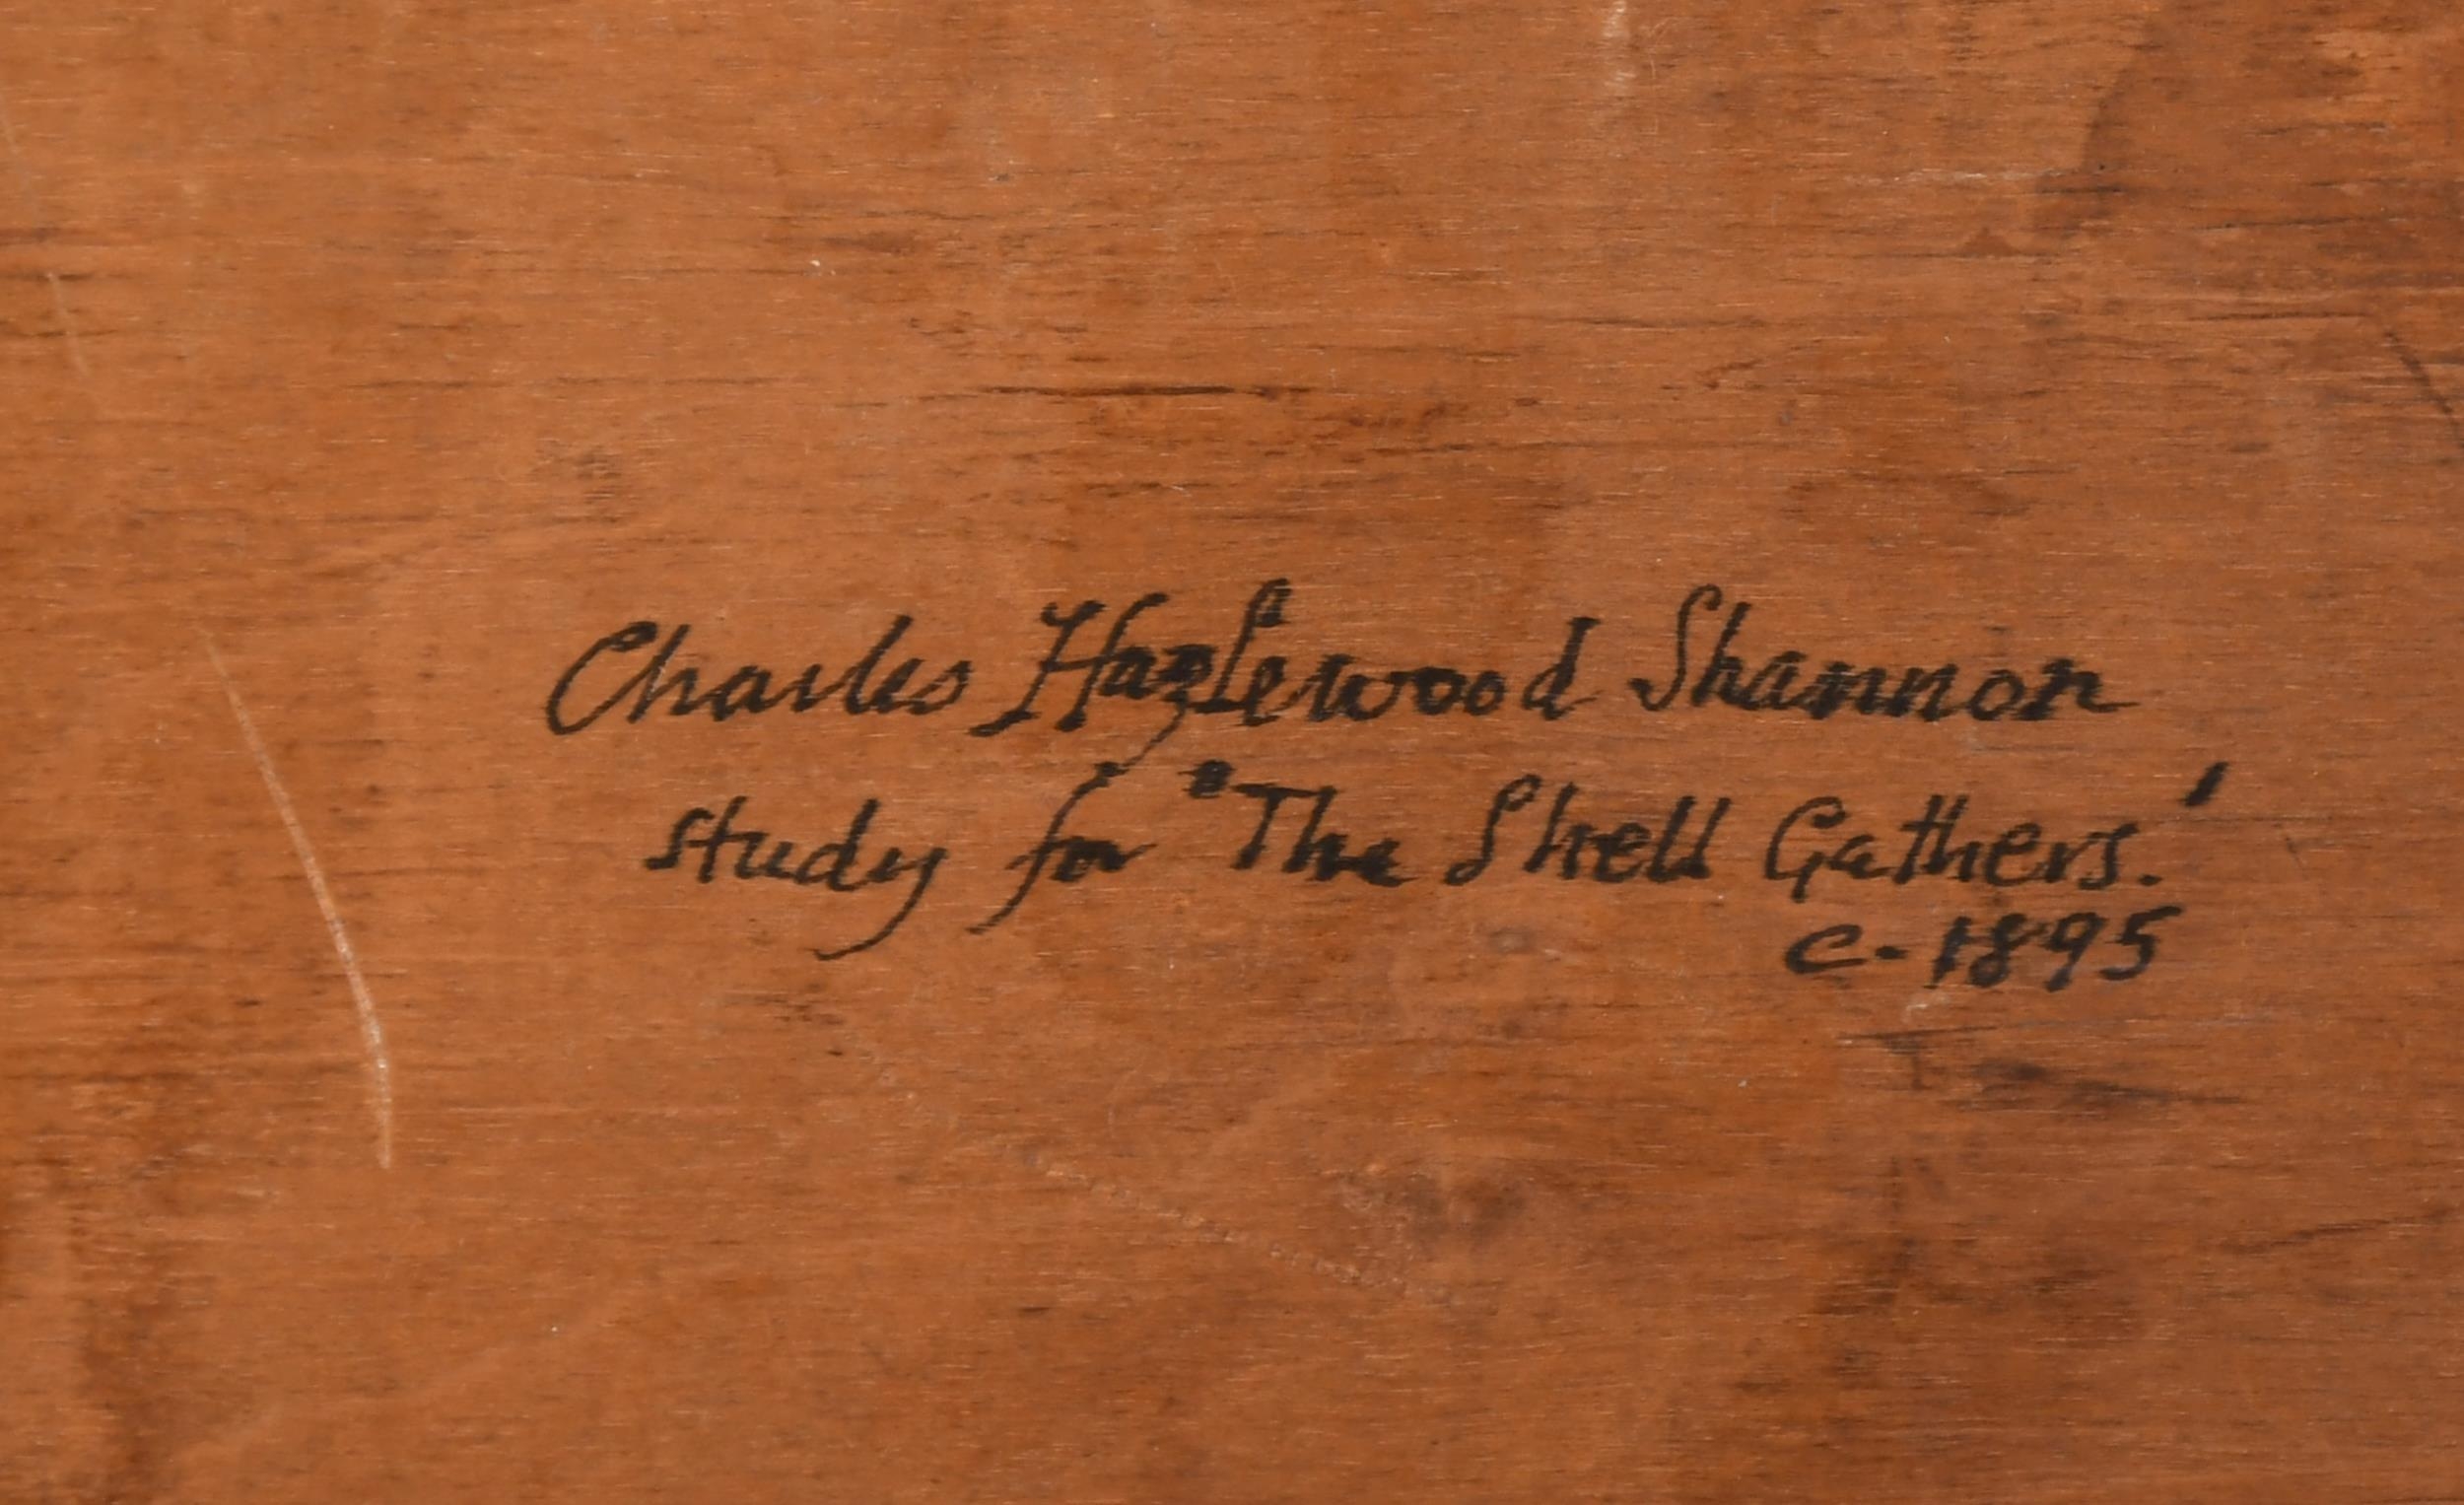 Charles Hazlewood Shannon
study for "The Shell Gathers.'
c. 1895